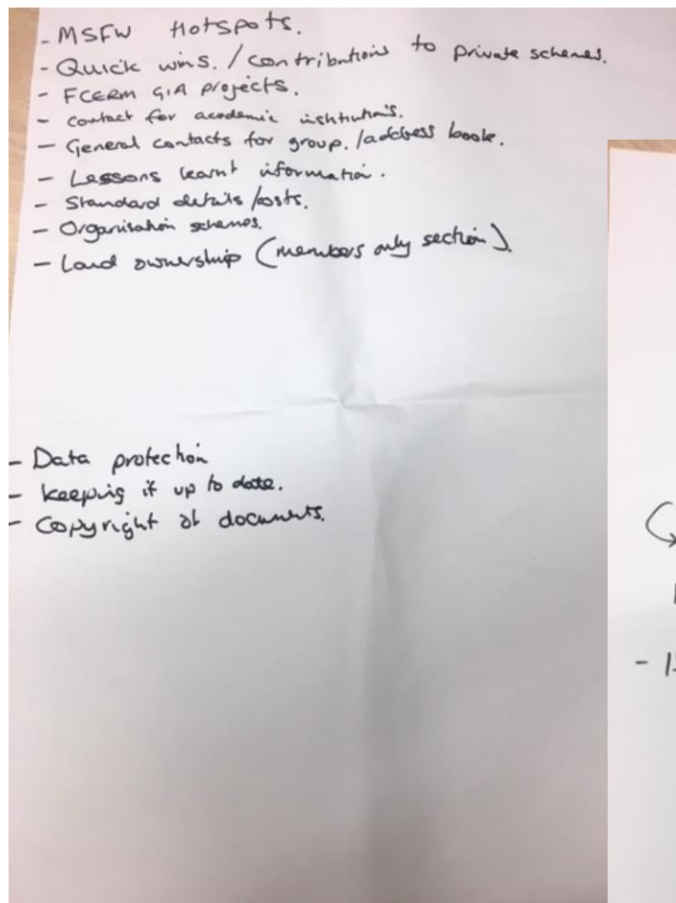 - MSFW Hotspots.
- Quick wins. / contributions to private schemes.
- FCERM GIA projects.
- contact for academic institutions.
- General contacts for group. / address book.
- Lessons learnt information.
- Standard details / costs.
- Organisation schemes.
- Land ownership (members only section).
- Data protection
- keeping it up to date.
- Copyright of documents.